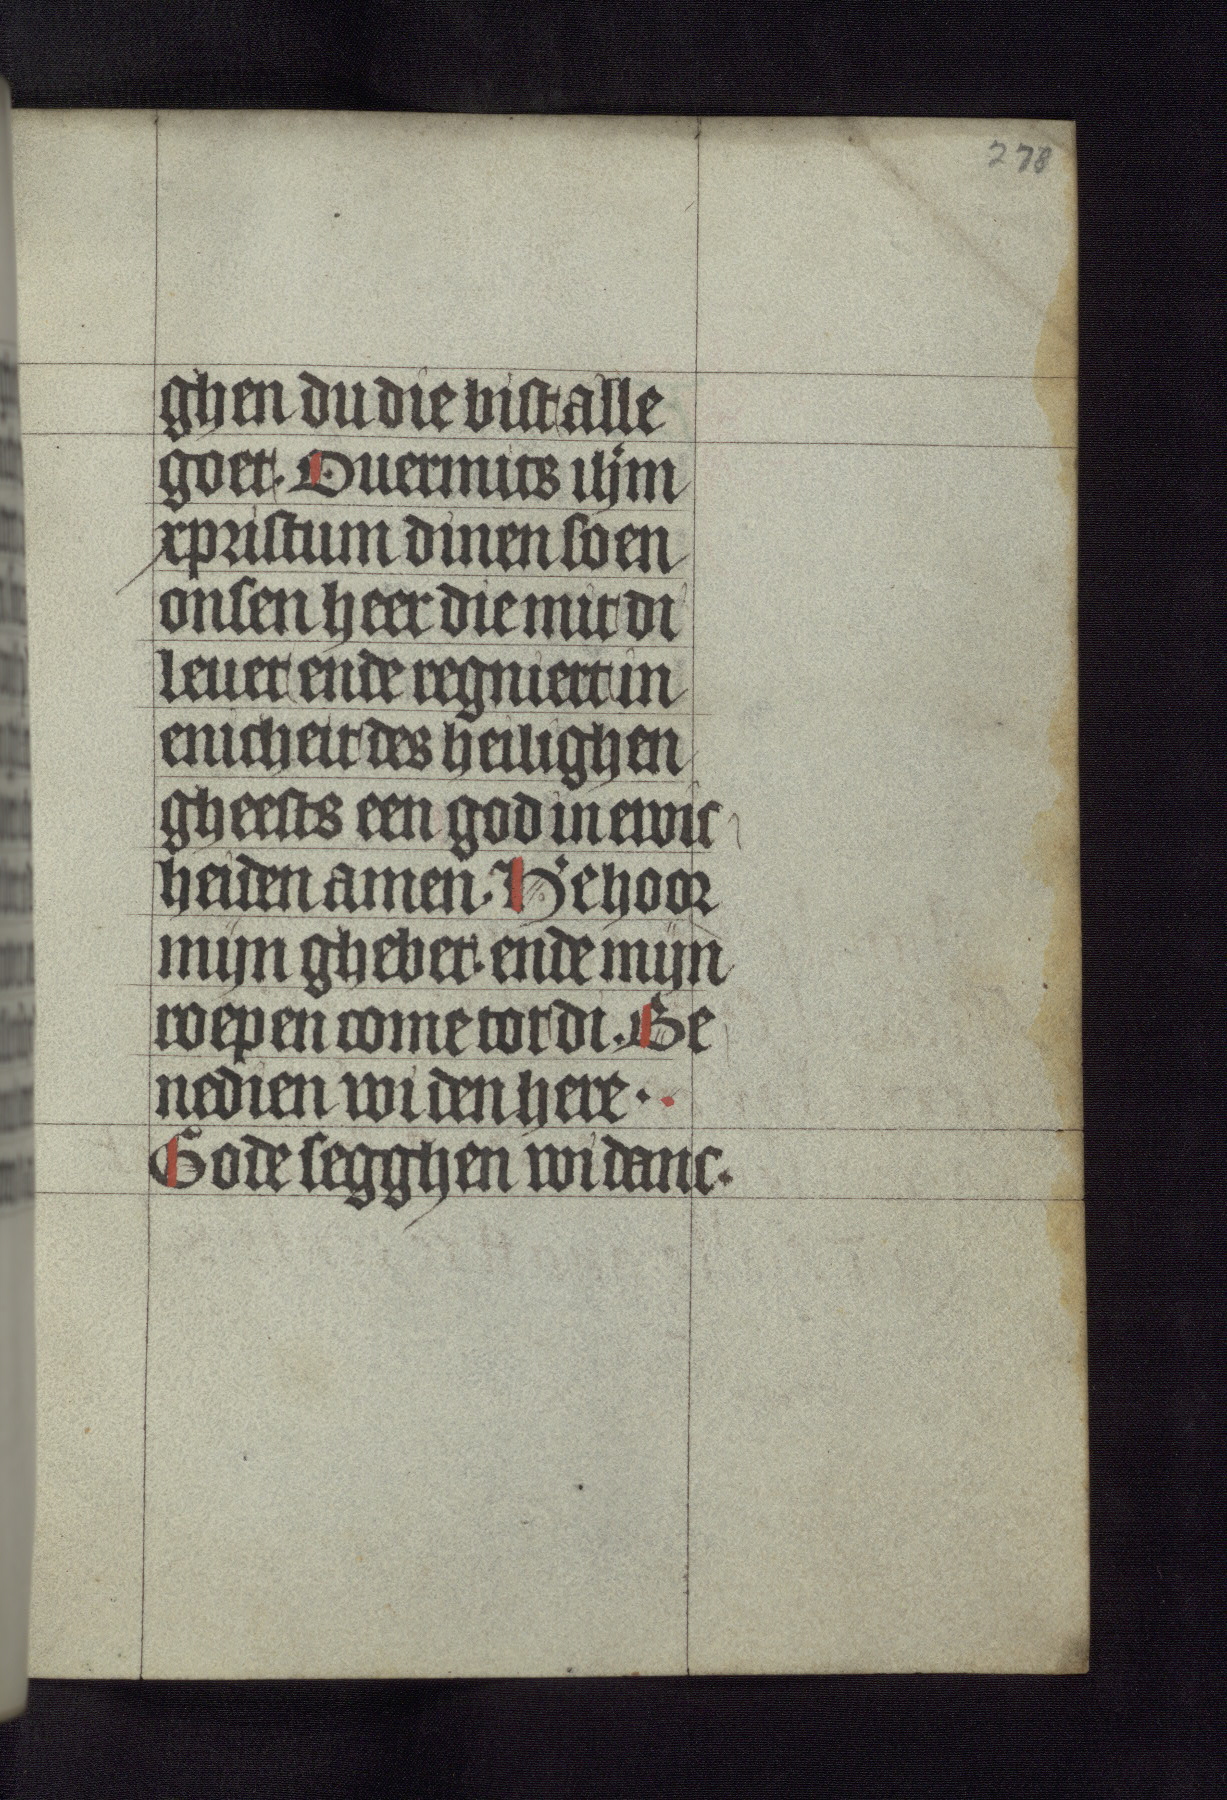 278
ghen du die bist alle
goet. Ouermits ihm
xpristum dinen soen
onsen heer die mit di
leuet ende regniert in
enicheit des heilighen
gheests een god in ewic
heiden amen. H'e hoor
mijn ghebet. ende mijn
roepen come tot di. Be
nedien wi den here.
Gode segghen wi danc.